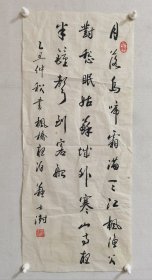 月落烏啼霜滿天江楓漁火
對愁眠姑蘇城外寒山寺夜
半鐘聲到客船
乙丑仲秋書楓橋夜泊 蘇士澍